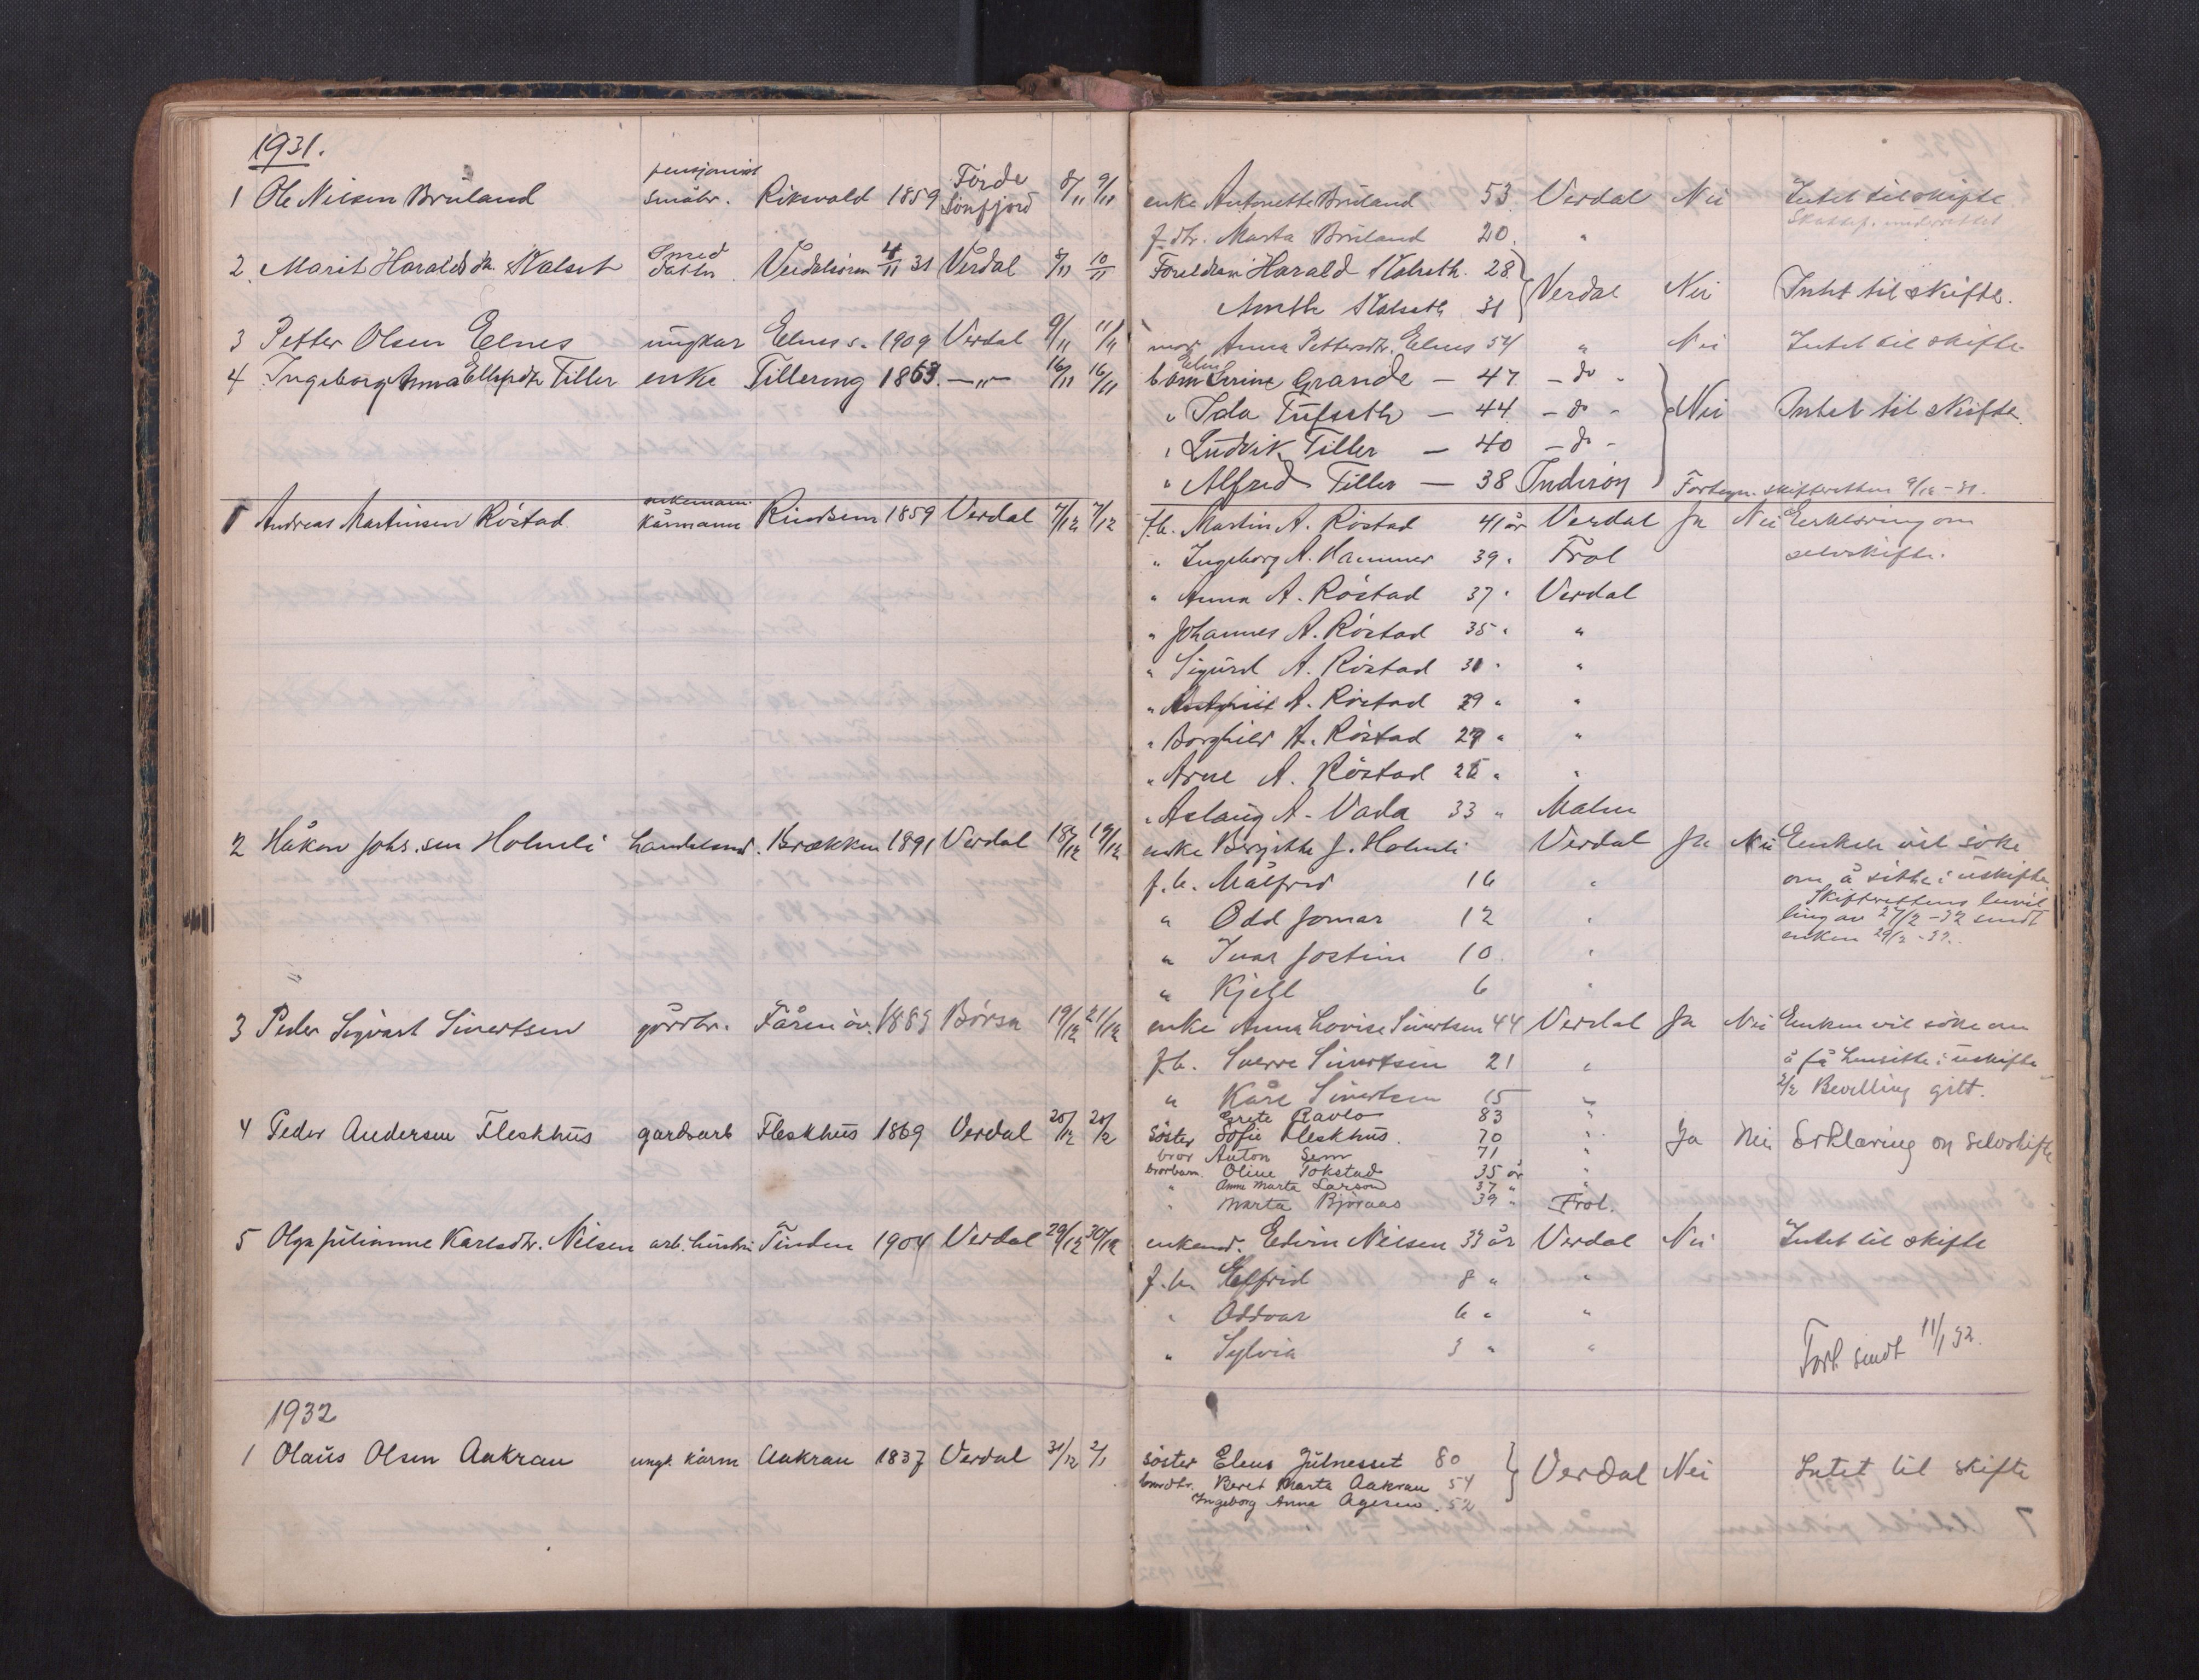 1931.
pensjonist
Förde
1 Ole Nilsen Brüland småbr. Riksvold 1859 Sönfjord 8/11 9/11
Smed
2. Marit Haralds dtr. Skalset datter Verdalsören 4/11 31 Verdal 8/11 10/11
3 Petter Olsen Elnes ungkar Elnes v. 1909 Verdal 9/11 11/11
4 Ingeborg Anna Ellefsdtr Tiller enke Tillering 1863. —„— 16/11 16/11
enkemann
1 Andreas Martinsen Röstad Kårmann Rindsem 1859 Verdal 4/12 7/12
2 Håkon Johs.sen Holmli handelsmd. Brækken 1891 Verdal 18/12 19/12
3 Peder Sigvart Sivertsen gårdbr. Fåren öv. 1889 Börsa 19/12 21/12
4 Peder Andersen Fleskhus gardsarb Fleskhus 1869 Verdal 20/12 20/12
5 Olga Julianne Karlsdtr. Nilsen arb. hustru Tinden 1904 Verdal 29/12 30/12
1932
1 Olaus Olsen Aakran ungk. kårm Aakran 1837 Verdal 31/12 2/1
enke Antonette Brüland 53 Verdal Nei Intet til skifte
f. dtr. Marta Brüland 20. „
Foreldre: Harald Skalseth. 28
Verdal Nei Intet til skifte.
Skalseth 31
mor Anna Pettersdtr. Elnes 54 „ Nei Intet til skifte
Elen
barn Serine Grande — 47 — do -
„ Ida Tufseth — 44 — do - Nei Intet til skifte.
„ Ludvik Tiller — 40 — do -
„ Alfred Tiller — 38 Inderöy Fortegn. skifteretten 9/12 - 31.
f.b. Martin A. Röstad 41 år Verdal Ja Nei Erklæring om
„ Ingeborg A. Hammer 39 „ Frol selvskifte.
„ Anna A. Röstad 37 „ Verdal
„ Johannes A. Röstad 35 „ „
„ Sigurd A. Röstad 31 „ „
„ A. Röstad 29 „ „
„ Borghild A. Röstad 27 „ „
„ Arne A. Röstad 25 „ „
„ Aslaug A. Vada 33 „ Malm
enke Bergitte J. Holmli Verdal Ja Nei Enken vil söke
f.b. Målfrid 16 „ om å sitte i uskifte
Skifterettens bevil
„ Odd Jomar 12 „ ling av 27/2 -32 sendt
enken 29/2 - 32.
„ Ivar Jostein 10. „
„ Kjell 6 „
enke Anna Lovise Sivertsen 44 Verdal Ja Nei Enken vil söke om
f.b. Sverre Sivertsen 21 „ å få hensitte i uskifte
2/2 Bevilling gitt.
„ Kåre Sivertsen 15 „
Grete Ravlo 83 „
söster Sofie Fleskhus. 70 „ Ja Nei Erklæring om selvskifte
bror Anton Sem 71 „
brorbarn Oline Tokstad 35 år „
„ Anne Marta Larson 37 „ „
„ Marta Björaas 39 „ Frol.
enkemd. Edvin Nilsen 33 år Verdal Nei Intet til skifte
f.b. Elfrid 8 „ „
„ Oddvar 6 „ „
„ Sylvia 3 „ „
Fort. sendt 11/1 32.
söster Elens Julnesset 80
Verdal Nei Intet til skifte
brordtr. Beret Marta Aakran 54
Ingeborg Anna Agesen . 52